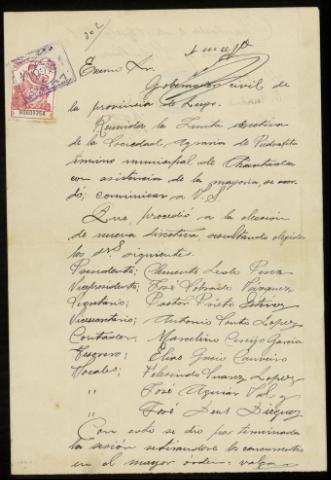 Excmo Sr.
Gobernador civil de
la provincia de Lugo.
Reunidos la Junta directiva
de la Sociedad, Agraria de Pedrafita
término municipal de Chantada
con asistencia de la mayoria, se acor-
dó, comunicar a V.S
Que procedió a la elección
de nueva directiva, resultando elegidos
los srs siguientes.
Presidente; Clemente Ledo Perez
Vicepresidente; José Vázquez
Secretario; Pastor Prieto
Vicesecretario; Antonio Souto López
Contador; Marcelino García
Tesorero; Elias
Vocales; Suarez Lopez
" José Aguiar Val y
" José Deus Diéguez
Con esto se dio por terminada
la sesión retirandose los concurrentes
en el mayor órden.